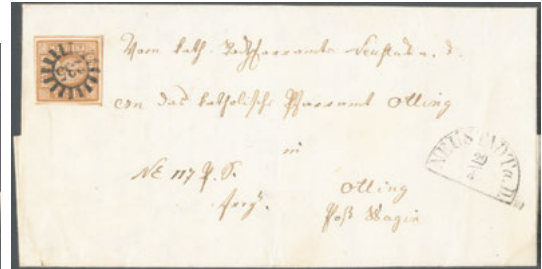 Vom kath. Stadtpfarramte Neustadt a. d.
an das katholische Pfarramt Otting
in
NE 117 P. S.
Otting
Post Wagin
NEUSTADT a.D.
29
4